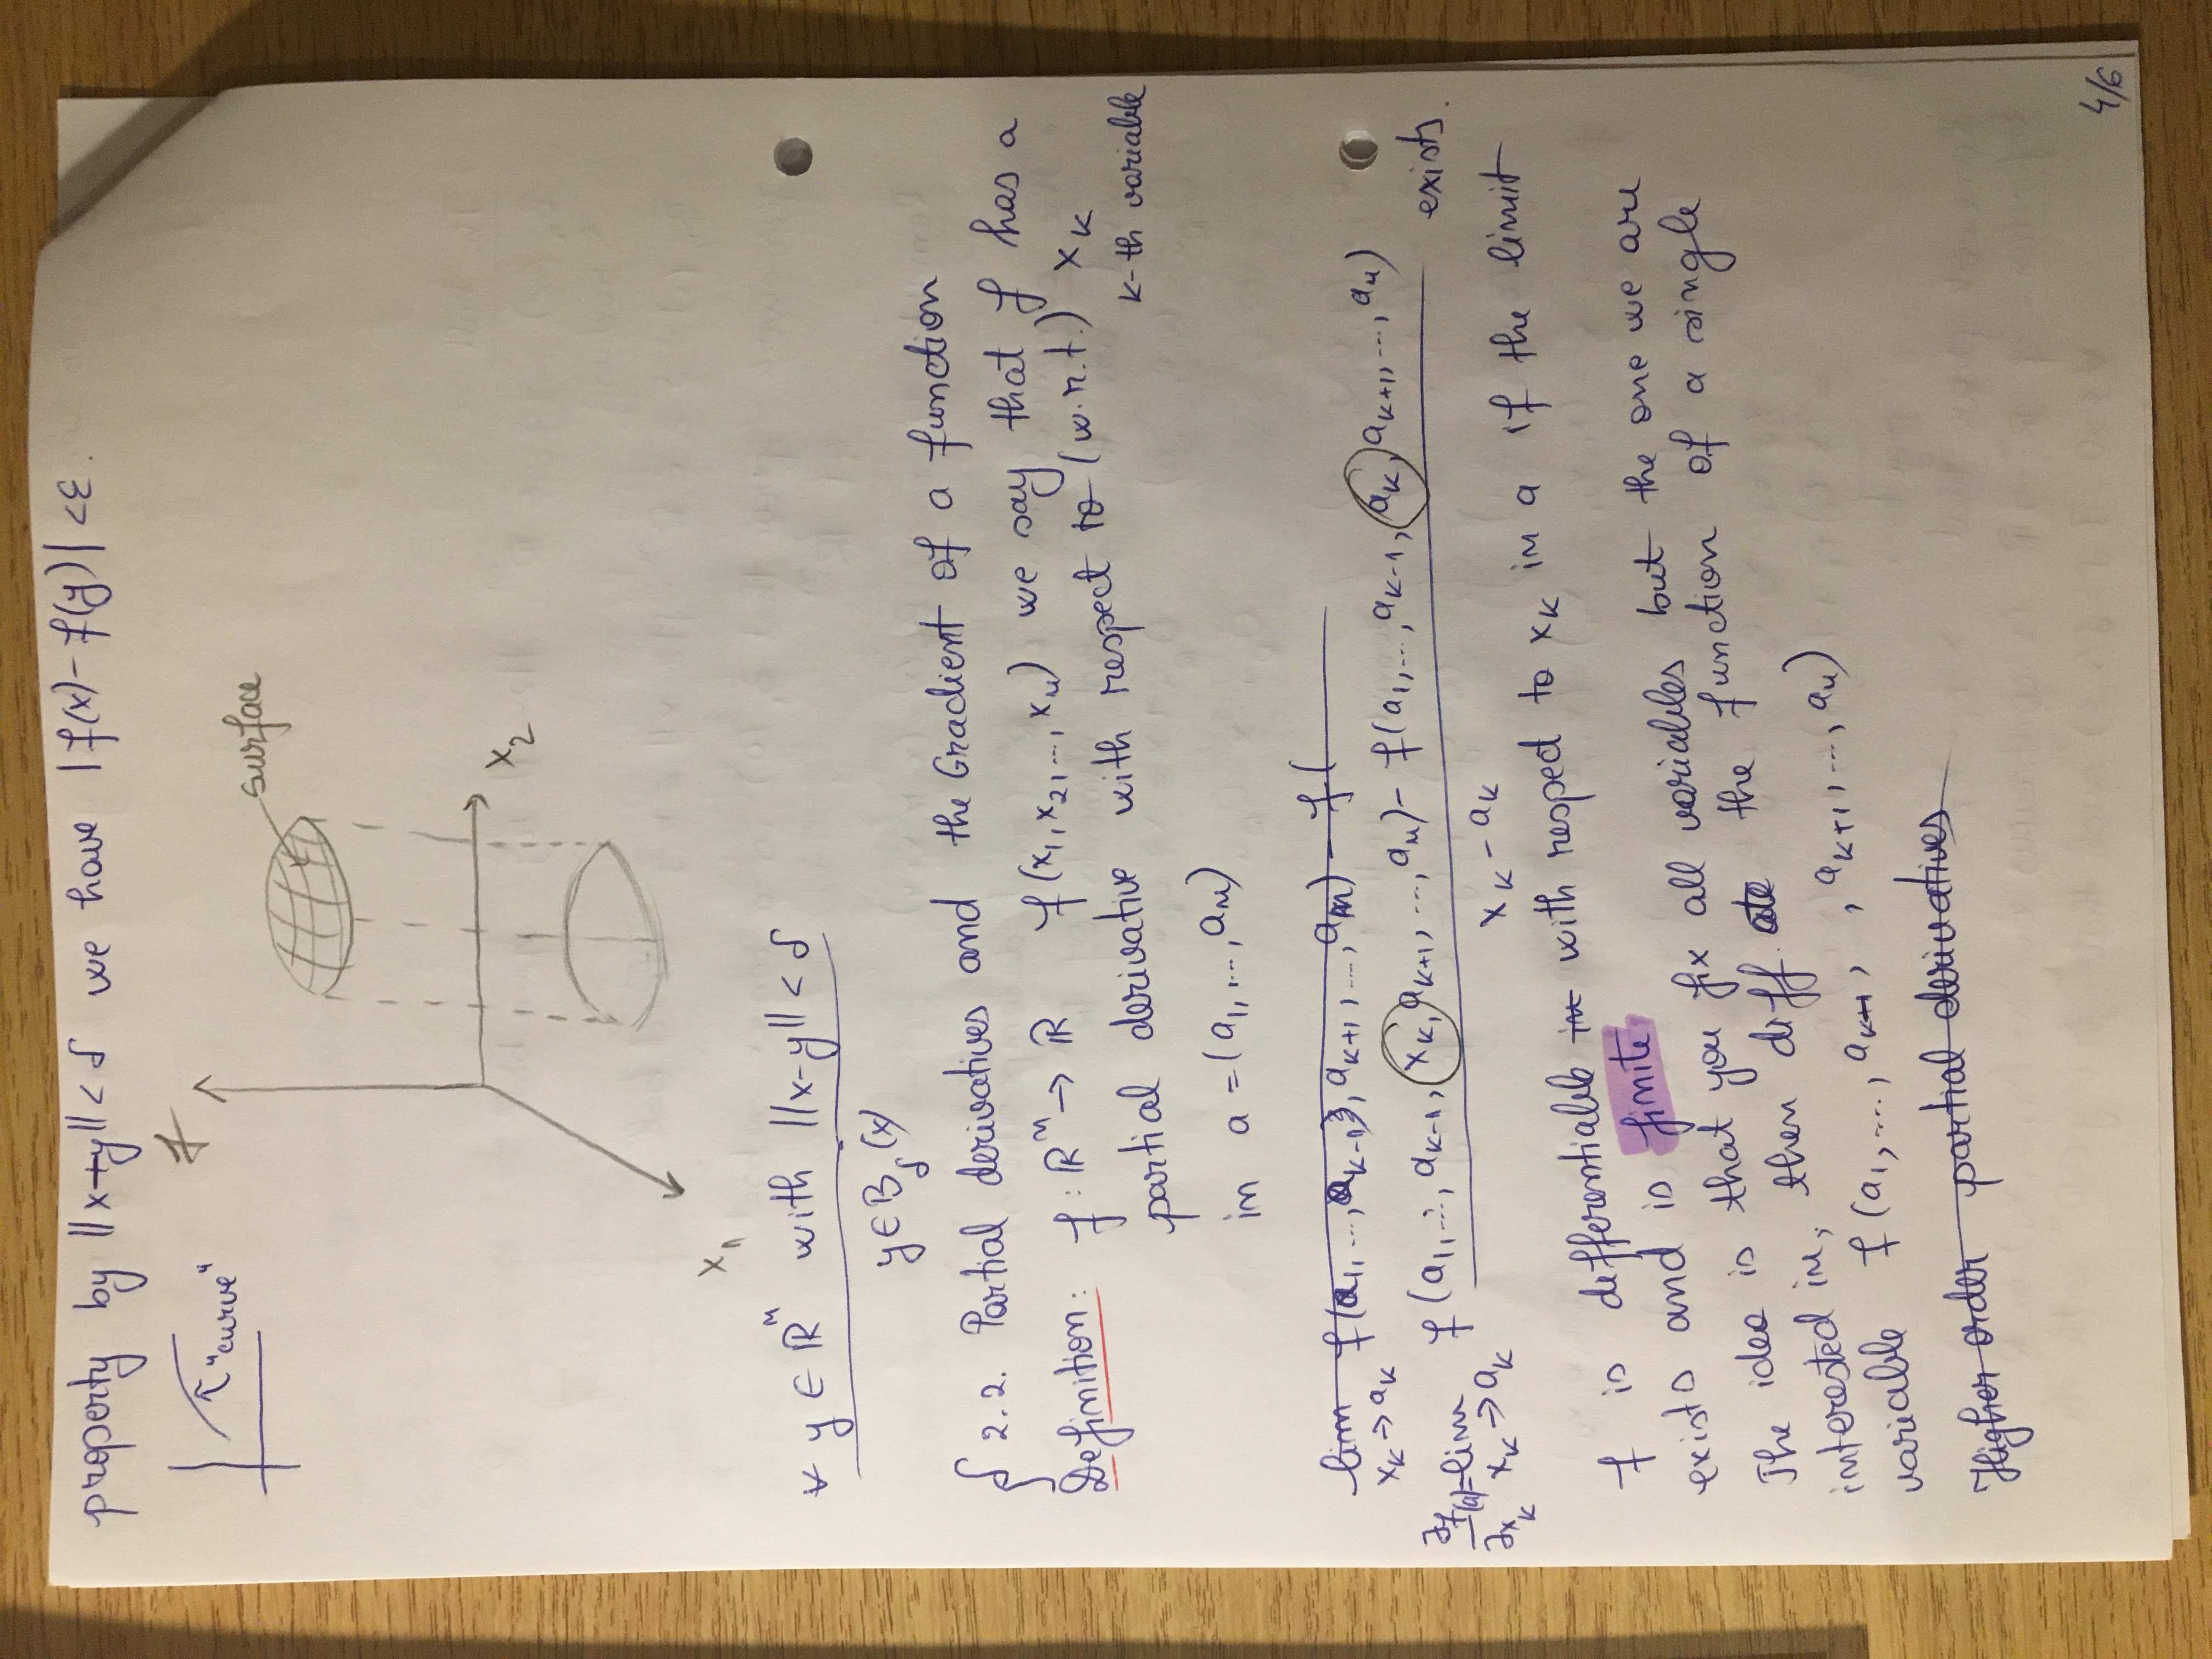 property by ||x+y|| < δ we have |f(x) - f(y)| < ε.
"curve"
f
surface
x₂
x₁
∀ y ∈ ℝⁿ with ||x-y|| < δ
y ∈ B_δ(x)
§ 2.2. Partial derivatives and the Gradient of a function
Definition: f: ℝⁿ → ℝ f(x₁, x₂, ..., xₙ) we say that f has a
partial derivative with respect to (w.r.t.) x_k
k-th variable
in a = (a₁, ..., aₙ)
lim f(a₁, ..., a_{k-1}, a_{k+1}, ..., aₙ) - f(
x_k → a_k
∂f/∂x_k (a) = lim_{x_k → a_k} (f(a₁, ..., a_{k-1}, x_k, a_{k+1}, ..., aₙ) - f(a₁, ..., a_{k-1}, a_k, a_{k+1}, ..., aₙ)) / (x_k - a_k) exists.
f is differentiable in with respect to x_k in a if the limit
exists and is finite
The idea is that you fix all variables but the one we are
interested in, then diff. ate the function of a single
variable f(a₁, ..., a_{k-1}, , a_{k+1}, ..., aₙ)
Higher order partial derivatives
4/6